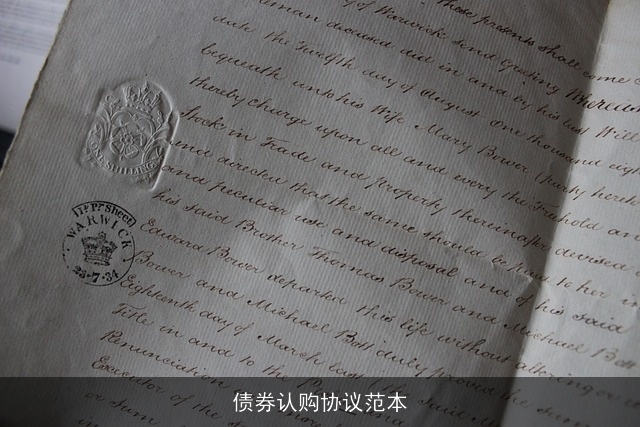 of Warwick send Greeting Whereas
deceased did in and by his last Will
date the Twelfth day of August One thousand eigh
bequeath unto his Wife Mary Bower
thereby charge upon all and every the Freehold and
Stock in Trade and property thereinafter devised
and directed that the same should be paid to her
and peculiar use and disposal and of his said
his said Brother Thomas Bower and Michael Bott
Edward Bower departed this life without altering or
Bower and Michael Bott duly proved the same
Eighteenth day of March last
Title in and to the
Renunciation
Executor of the
or Sum
ONE SHILLING
1r. Pr Sheet
WARWICK
23·7·34
债券认购协议范本